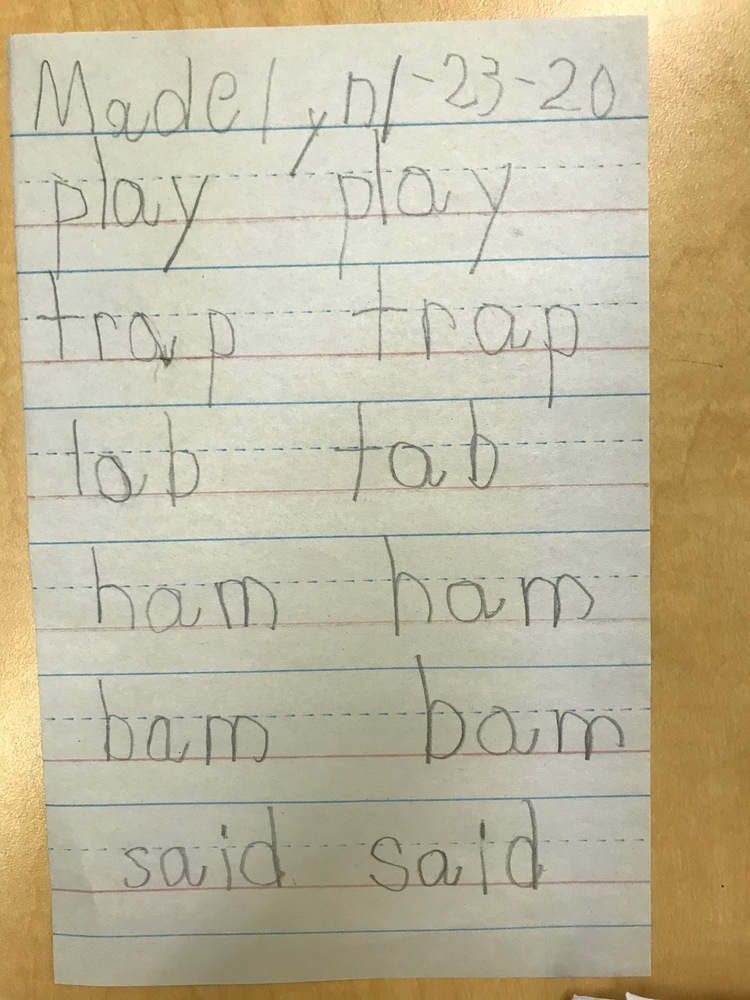 Madelyn 1-23-20
play play
trap trap
tab tab
ham ham
bam bam
said said